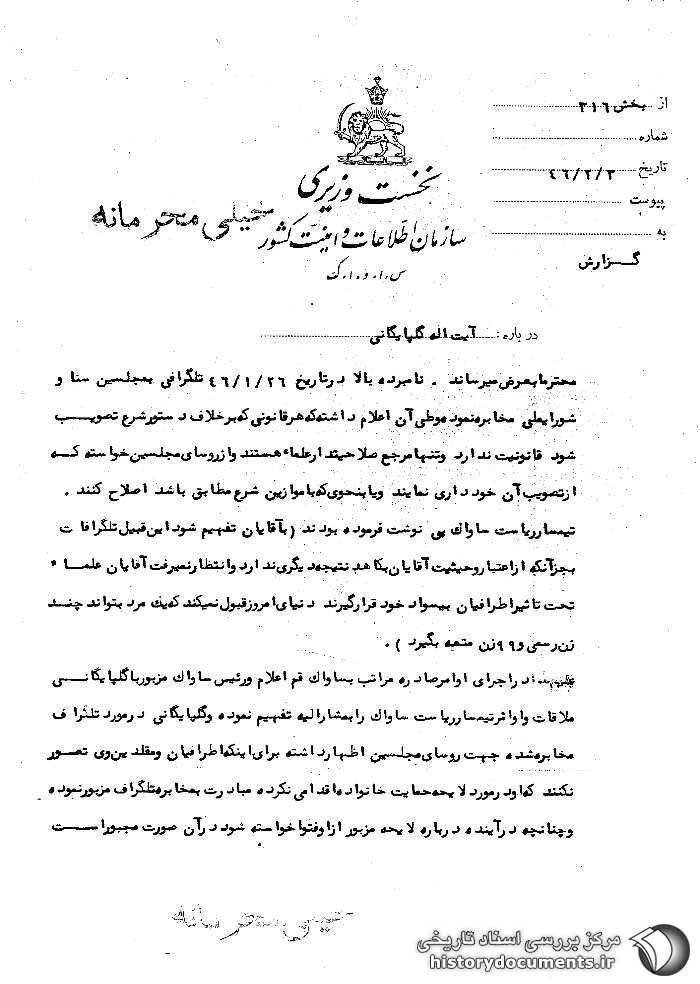 از بخش ۳۱۶
شماره
تاریخ ۴۶/۲/۳
پیوست
به
گزارش
نخست وزیری
سازمان اطلاعات و امنیت کشور
س.ا.و.ا.ک
خیلی محرمانه
درباره: آیت اله گلپایگانی
محترما بعرض میرساند . نامبرده بالا در تاریخ ۴۶/۱/۲۶ تلگرافی بمجلسین سنا و
شورایملی مخابره نموده و طی آن اعلام داشته که هر قانونی که برخلاف دستور شرع تصویب
شود قانونیت ندارد و تنها مرجع صلاحیتدار علماء هستند و از روسای مجلسین خواسته که
از تصویب آن خودداری نمایند و یا بنحوی که با موازین شرع مطابق باشد اصلاح کنند .
تیمسار ریاست ساواک پی نوشت فرموده بودند ( بآقایان تفهیم شود این قبیل تلگرافات
بجز آنکه از اعتبار و حیثیت آقایان بکاهد نتیجه دیگری ندارد و انتظار نمیرفت آقایان علماء
تحت تاثیر اطرافیان بیسواد خود قرار گیرند دنیای امروز قبول نمیکند که یک مرد بتواند چند
زن رسمی و ۹۹ زن متعه بگیرد ) .
در اجرای اوامر صادره مراتب بساواک قم اعلام و رئیس ساواک مزبور با گلپایگانی
ملاقات و اوامر تیمسار ریاست ساواک را بمشارالیه تفهیم نموده و گلپایگانی در مورد تلگراف
مخابره شده جهت روسای مجلسین اظهار داشته برای اینکه اطرافیان و مقلدین وی تصور
نکنند که او در مورد لایحه حمایت خانواده اقدامی نکرده مبادرت بمخابره تلگراف مزبور نموده
و چنانچه در آینده درباره لایحه مزبور از او فتوا خواسته شود در آن صورت مجبور است
خیلی محرمانه
مرکز بررسی اسناد تاریخی
historydocuments.ir